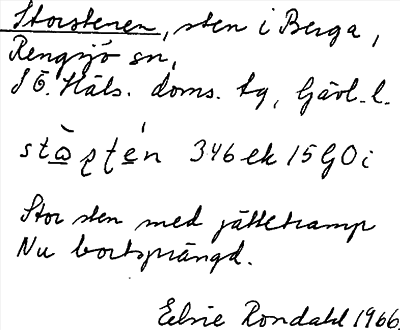 Storstenen, sten i Berga,
Rengsjö sn,
S Ö. Häls. doms. tg, Gävl. l.
346 ek 15 G0i
Stor sten med jättetramp
Nu bortsprängd.
Elsie Rondahl 1966.